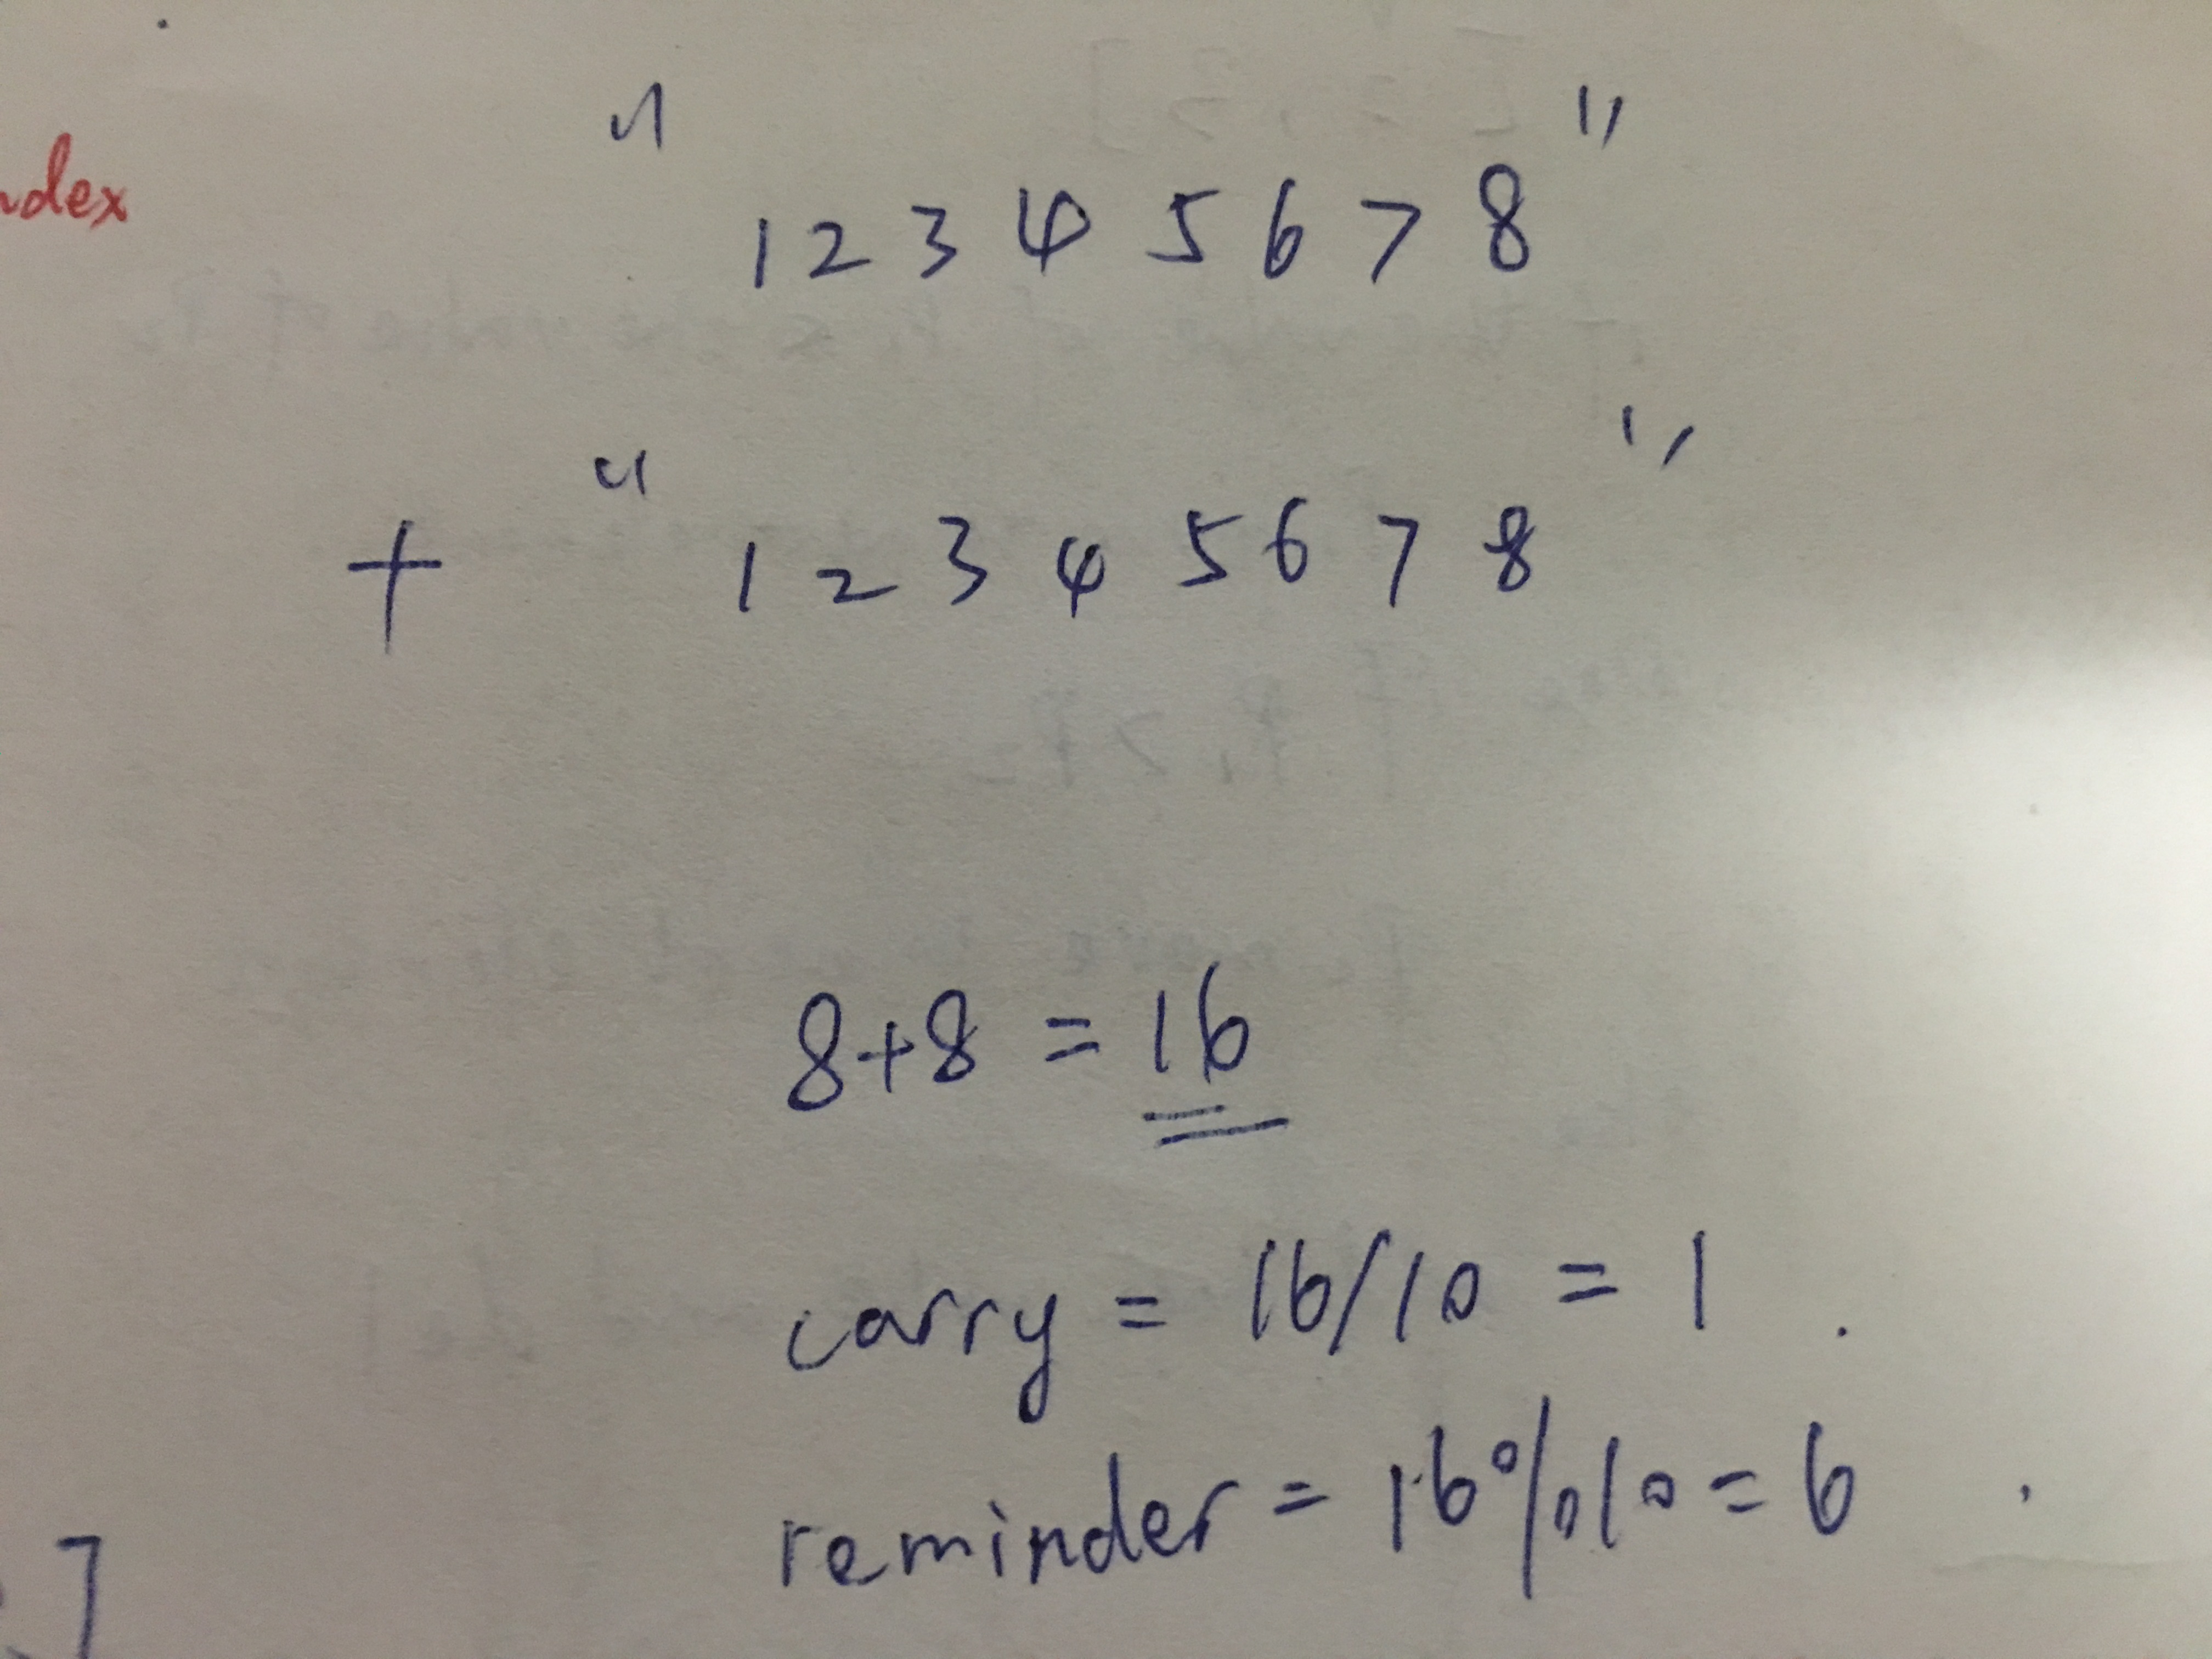 ndex
" 1 2 3 4 5 6 7 8 "
+ " 1 2 3 4 5 6 7 8 "
8+8 = 16
carry = 16/10 = 1
reminder = 16 % 10 = 6